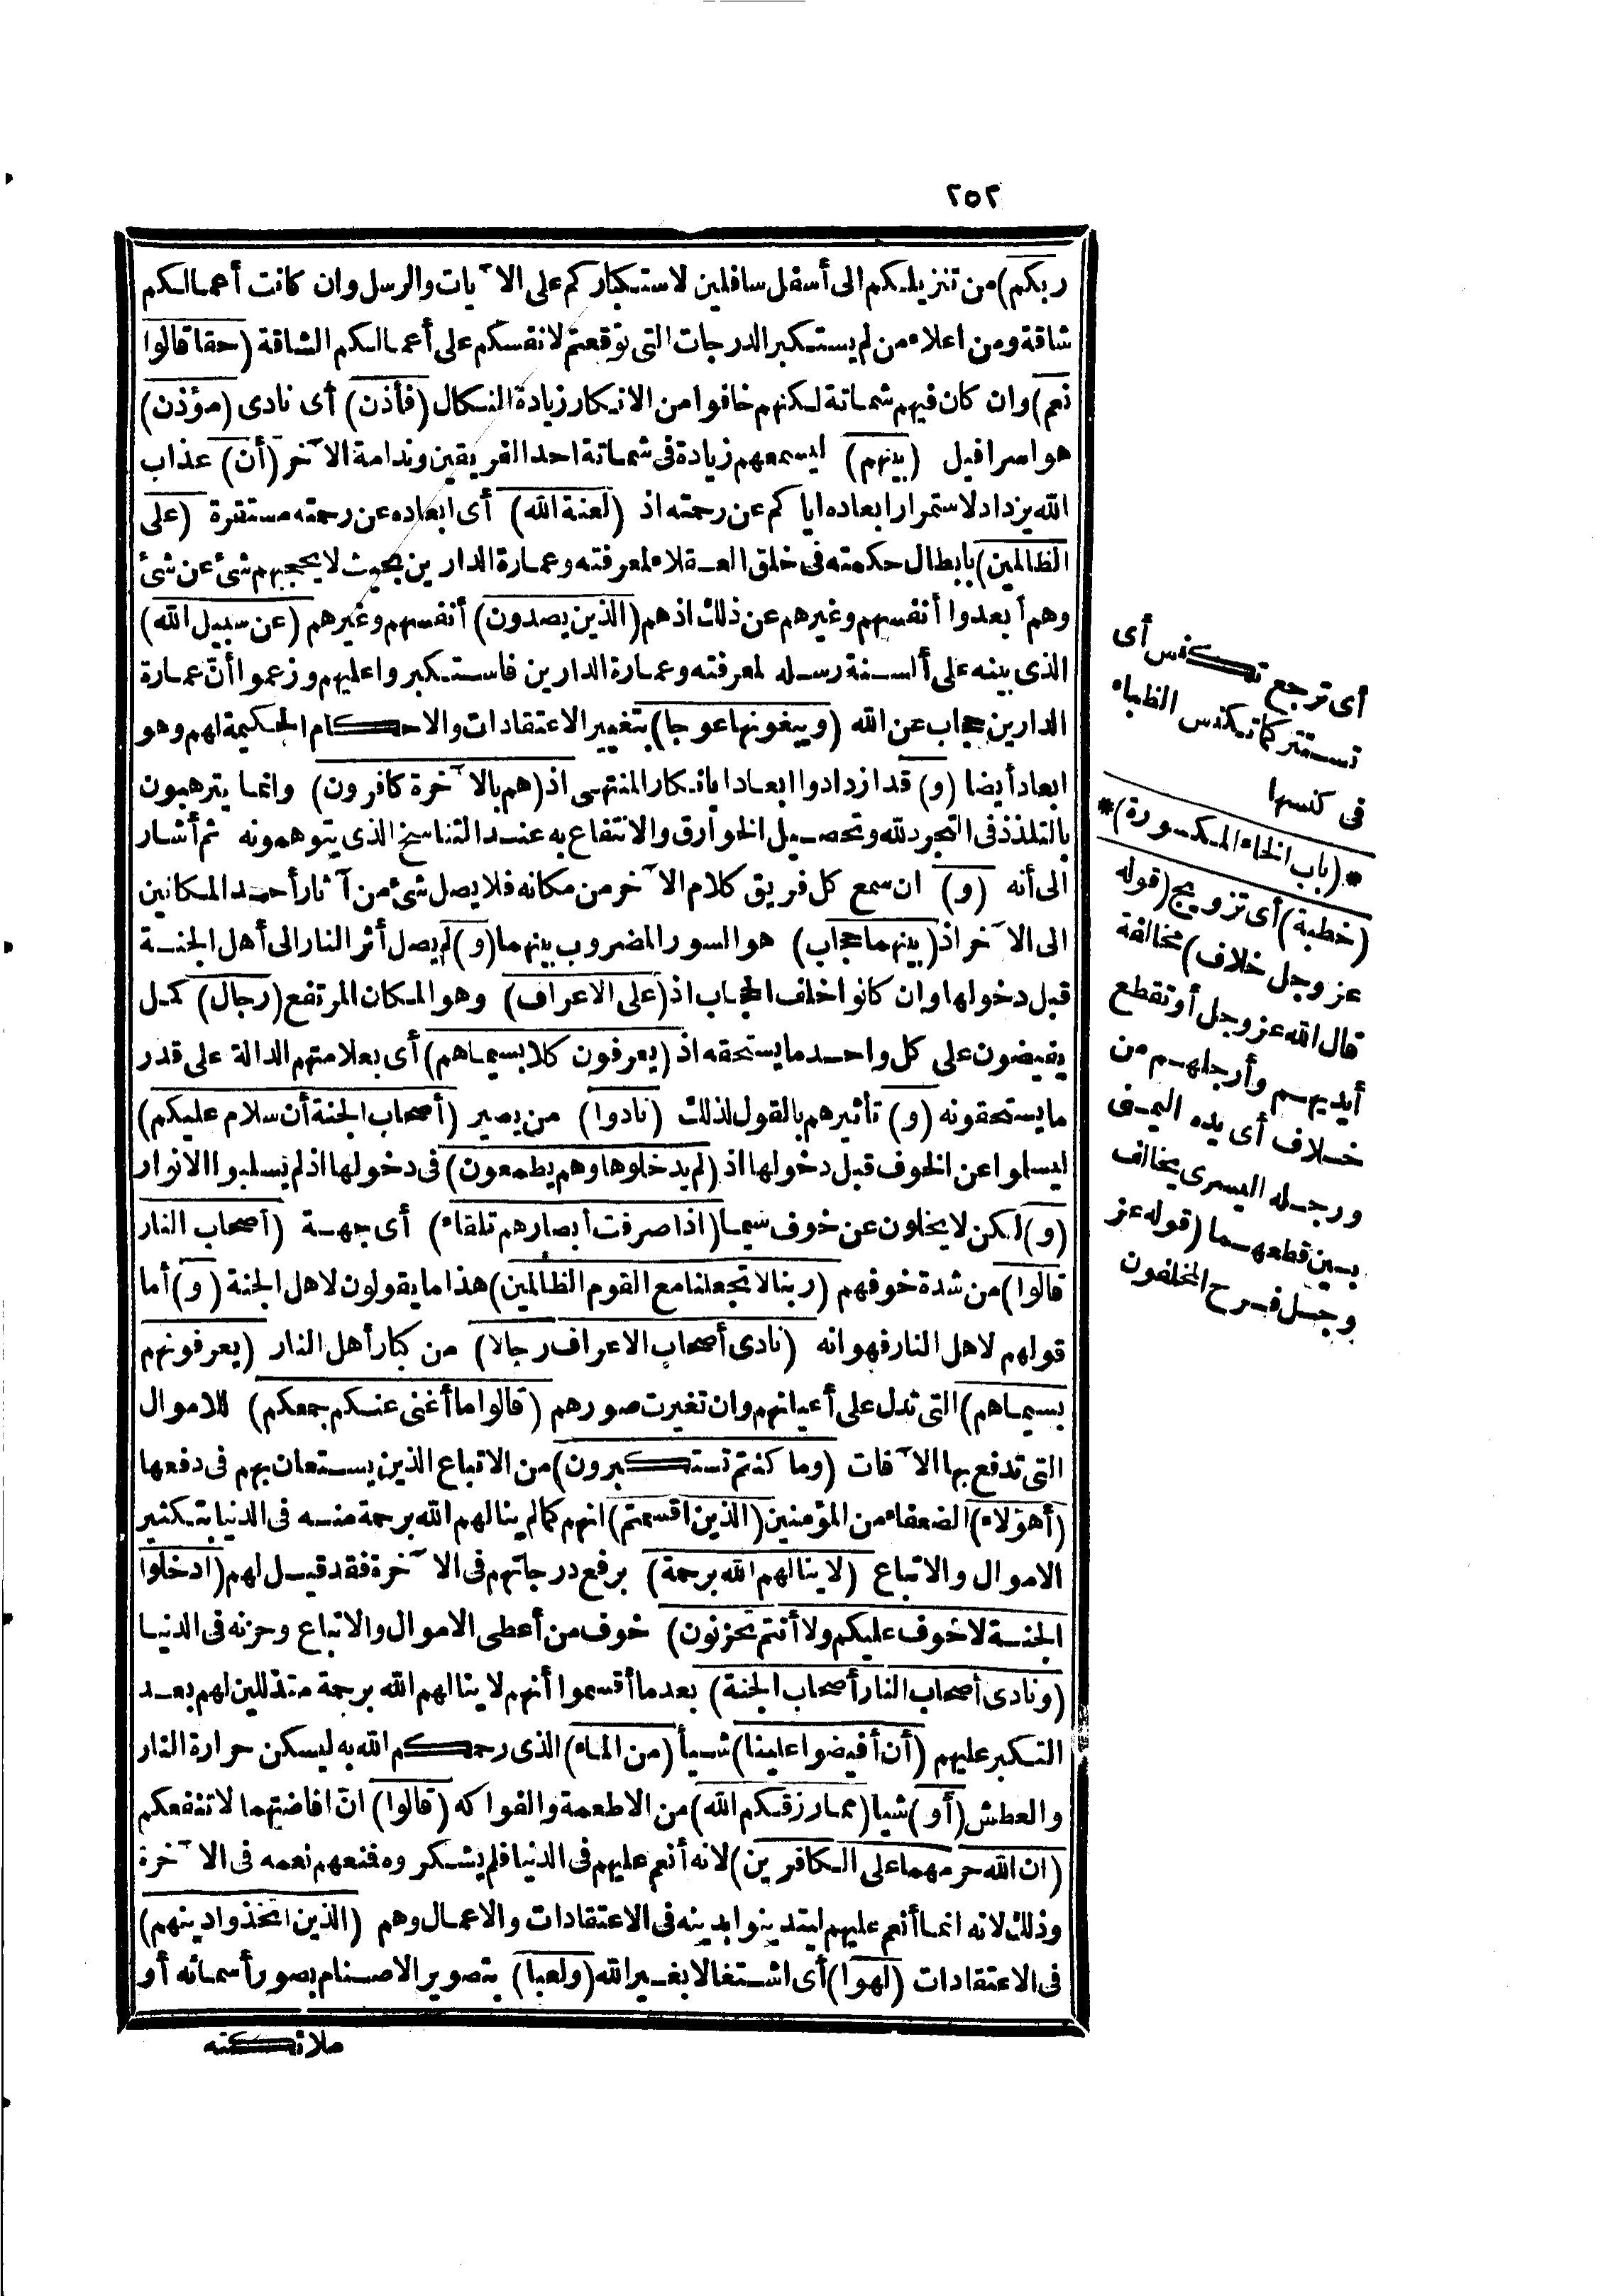 ٢٥٢
ربكم) من تنزيلكم الى أسفل سافلين لاستكباركم على الآيات والرسل وان كانت أعمالكم
شاقة ومن اعلاء من لم يستكبر الدرجات التى توقعتم لانفسكم على أعمالكم الشاقة (حقا قالوا
نعم) وان كان فيهم شماتة لكنهم خافوا من الانكار زيادة النكال (فأذن) أى نادى (مؤذن)
هو اسرافيل (بينهم) ليسمعهم زيادة فى شماتة احد الفريقين وندامة الآخر (أن) عذاب
الله يزداد لاستمرار ابعاده اياكم عن رحمته اذ (لعنة الله) أى ابعاده عن رحمته مستقرة (على
الظالمين) بابطال حكمته فى خلق العقلاء لمعرفته وعمارة الدارين بحيث لا يحجبهم شئ عن شئ
وهم أبعدوا أنفسهم وغيرهم عن ذلك اذ هم (الذين يصدون) أنفسهم وغيرهم (عن سبيل الله)
الذى بينه على ألسنة رسله لمعرفته وعمارة الدارين فاستكبروا عليهم وزعموا أن عمارة
الدارين حجاب عن الله (ويبغونها عوجا) بتغيير الاعتقادات والاحكام الحكيمة لهم وهو
ابعاد أيضا (و) قد ازدادوا ابعادا بانكار المنتهى اذ (هم بالآخرة كافرون) وانما يترهبون
بالتلذذ فى التجرد لله وتحصيل الخوارق والانتفاع به عند التناسخ الذى يتوهمونه ثم أشار
الى أنه (و) ان سمع كل فريق كلام الآخر من مكانه فلا يصل شئ من آثار أحد المكانين
الى الآخر اذ (بينهما حجاب) هو السور المضروب بينهما (و) لم يصل أثر النار الى أهل الجنة
قبل دخولها وان كانوا خلف الحجاب اذ (على الاعراف) وهو المكان المرتفع (رجال) كمل
يفيضون على كل واحد ما يستحقه اذ (يعرفون كلا بسيماهم) أى بعلامتهم الدالة على قدر
ما يستحقونه (و) تأثيرهم بالقول لذلك (نادوا) من يصير (أصحاب الجنة أن سلام عليكم)
ليسلوا عن الخوف قبل دخولها اذ (لم يدخلوها وهم يطمعون) فى دخولها اذ لم يسلبوا الانوار
(و) لكن لا يخلون عن خوف سيما (اذا صرفت أبصارهم تلقاء) أى جهة (أصحاب النار
قالوا) من شدة خوفهم (ربنا لا تجعلنا مع القوم الظالمين) هذا ما يقولون لاهل الجنة (و) أما
قولهم لاهل النار فهو انه (نادى أصحاب الاعراف رجالا) من كبار أهل النار (يعرفونهم
بسيماهم) التى تدل على أعيانهم وان تغيرت صورهم (قالوا ما أغنى عنكم جمعكم) للاموال
التى تدفع بها الآفات (وما كنتم تستكبرون) من الاتباع الذين يستعان بهم فى دفعها
(أهؤلاء) الضعفاء من المؤمنين (الذين اقسمتم) انهم كما لم ينالهم الله برحمة منه فى الدنيا بتكثير
الاموال والاتباع (لا ينالهم الله برحمة) برفع درجاتهم فى الآخرة فقد قيل لهم (ادخلوا
الجنة لا خوف عليكم ولا أنتم تحزنون) خوف من أعطى الاموال والاتباع وحزنه فى الدنيا
(ونادى أصحاب النار أصحاب الجنة) بعدما أقسموا أنهم لا ينالهم الله برحمة متذللين لهم بعد
التكبر عليهم (أن أفيضوا علينا) شيأ (من الماء) الذى رحمكم الله به ليسكن حرارة النار
والعطش (أو) شيا (مما رزقكم الله) من الاطعمة والفواكه (قالوا) ان افاضتهما لا تنفعكم
(ان الله حرمهما على الكافرين) لانه أنعم عليهم فى الدنيا فلم يشكروه فمنعهم نعمه فى الآخرة
وذلك لانه انما أنعم عليهم ليتدينوا بدينه فى الاعتقادات والاعمال وهم (الذين اتخذوا دينهم)
فى الاعتقادات (لهوا) أى اشتغالا بغير الله (ولعبا) بتصوير الاصنام بصور أسمائه أو
ملائكته
أى ترجع تكنس أى
تستتر كما تكنس الظباء
فى كنسها
*(باب الخاء المكسورة)*
(خطبة) أى تزويج (قوله
عز وجل خلاف) مخالفة
قال الله عز وجل أو تقطع
أيديهم وأرجلهم من
خلاف أى يده اليمنى
ورجله اليسرى يخالف
بين قطعهما (قوله عز
وجل فرح المخلفون